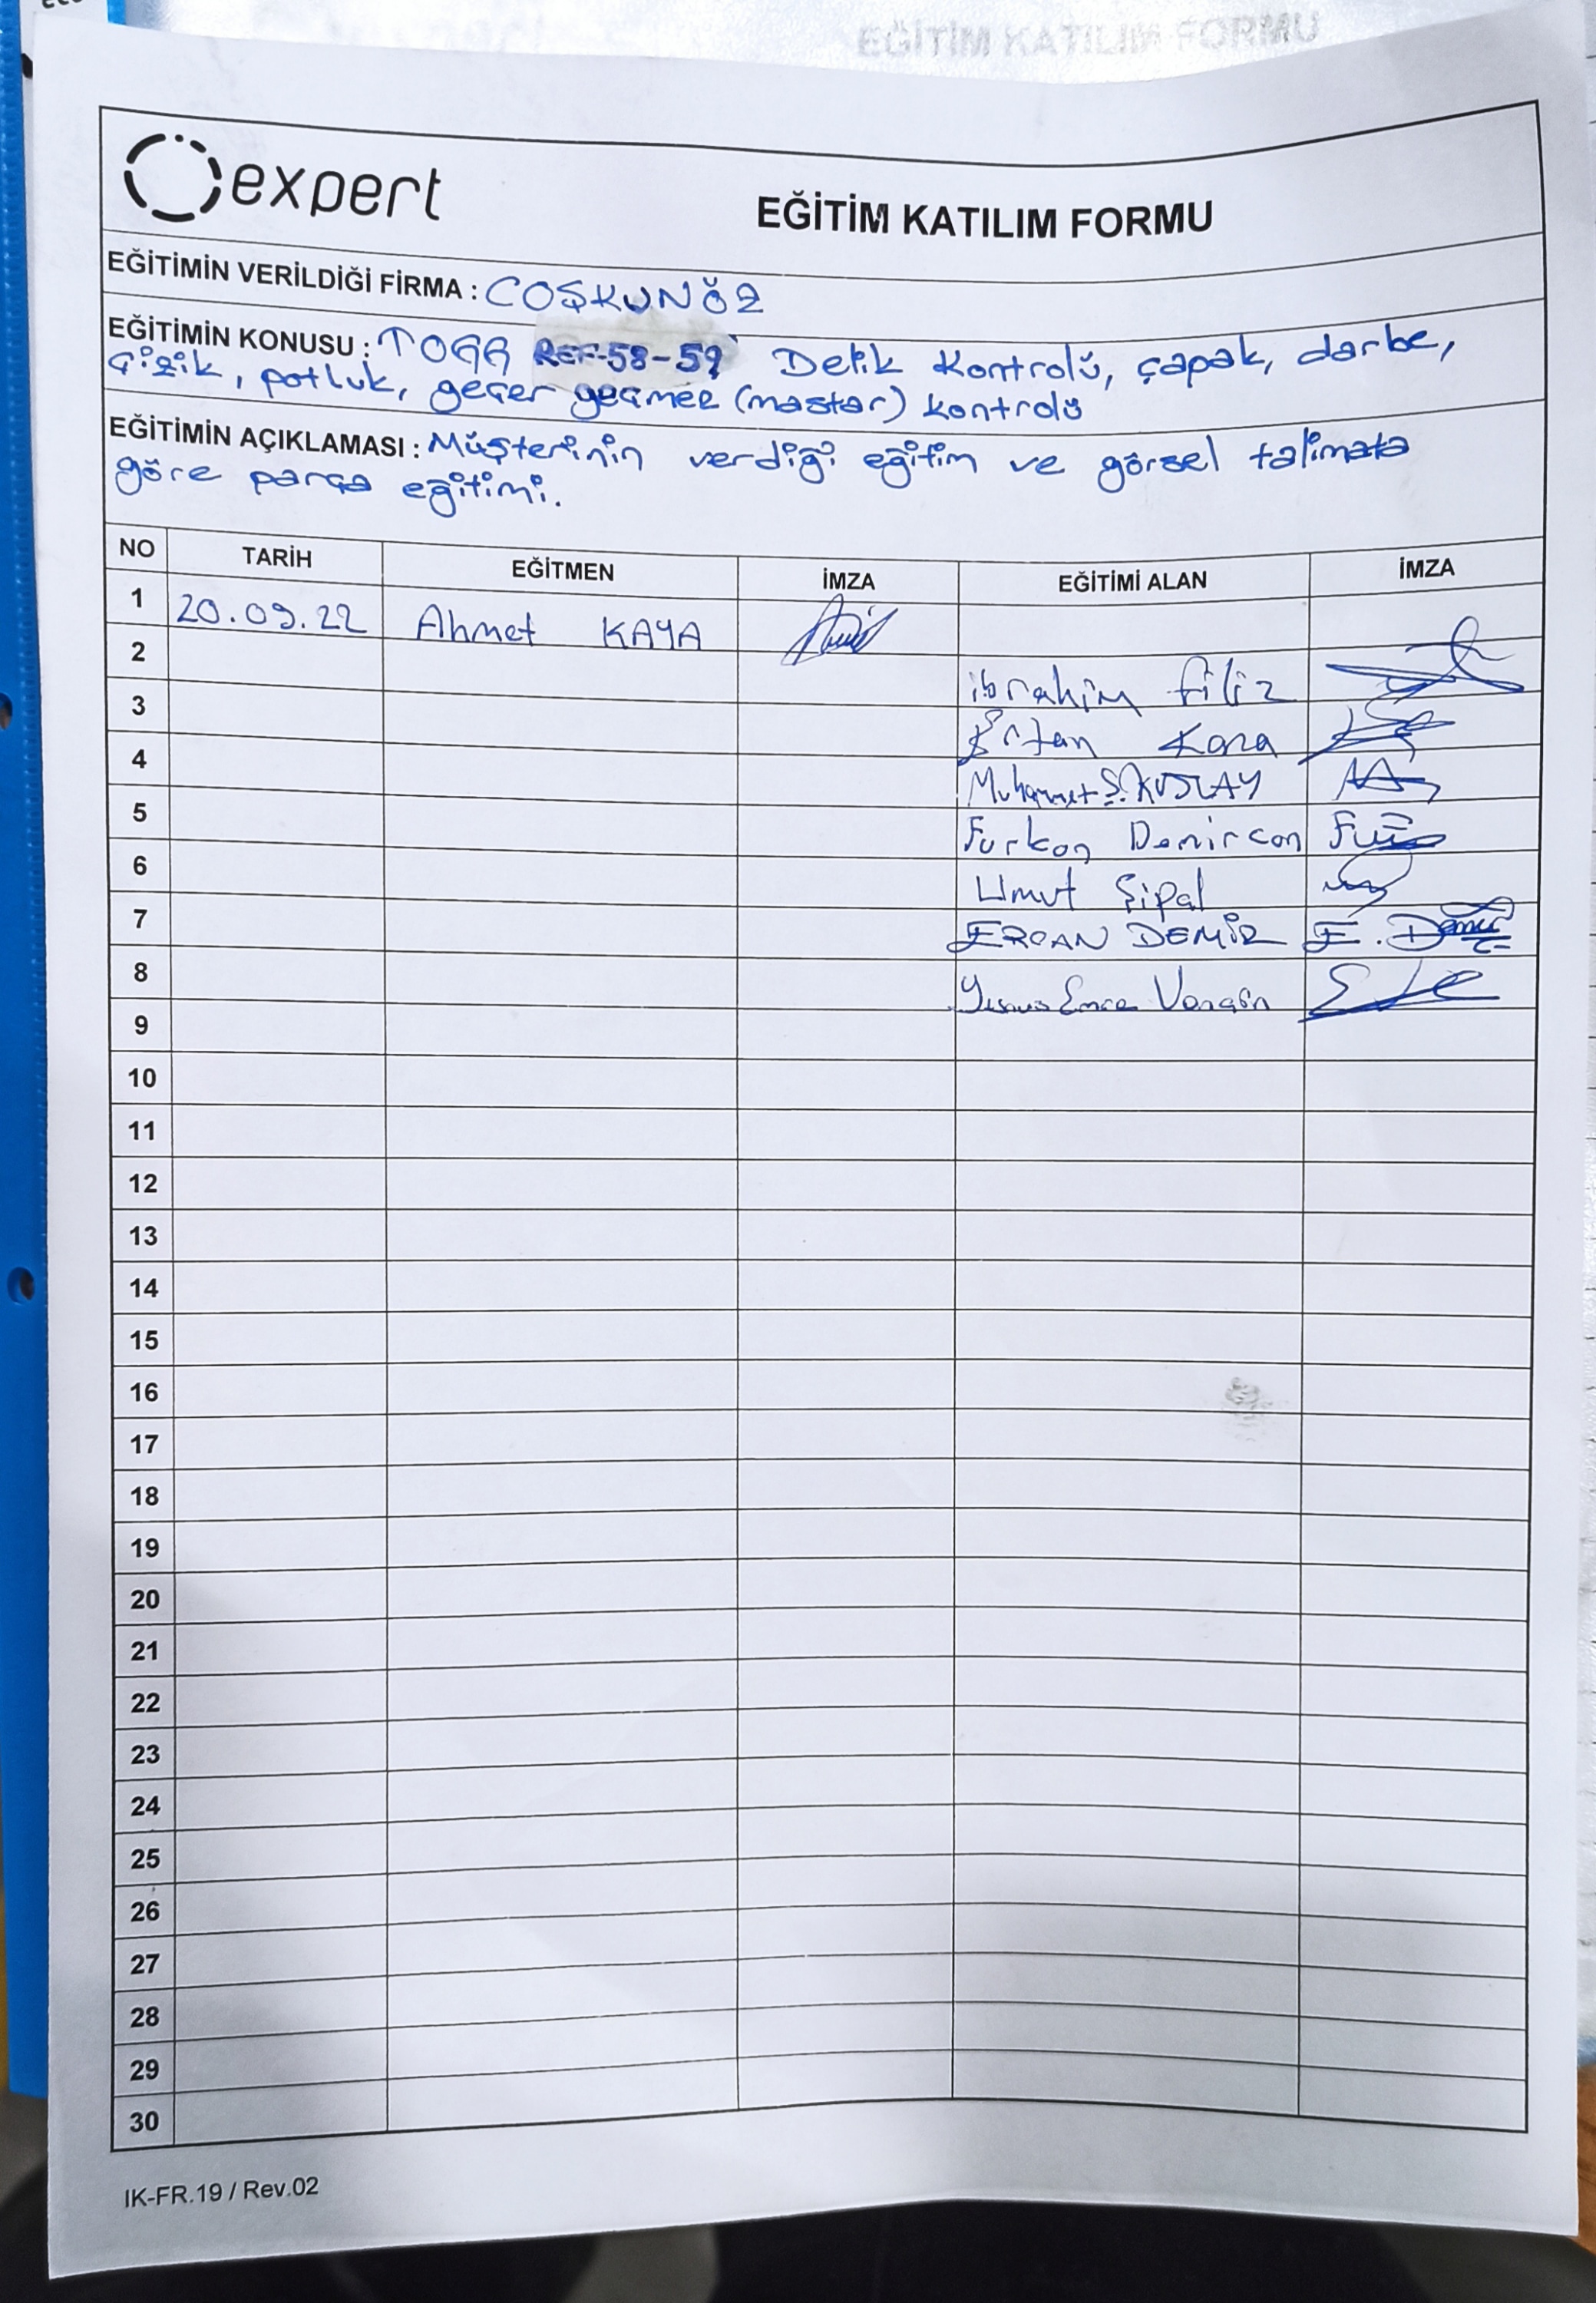 EĞİTİM KATILIM FORMU
expert
EĞİTİM KATILIM FORMU
EĞİTİMİN VERİLDİĞİ FİRMA : COŞKUNÖZ
EĞİTİMİN KONUSU : TOGG REF-58-59 Delik Kontrolü, çapak, darbe,
çizik, potluk, geçer geçmez (mastar) kontrolü
EĞİTİMİN AÇIKLAMASI : Müşterinin verdiği eğitim ve görsel talimata
göre parça eğitimi.
NO TARİH EĞİTMEN İMZA EĞİTİMİ ALAN İMZA
1 20.09.22 Ahmet KAYA
2 ibrahim filiz
3 Kara
4 Muhammet Ş.
5 Furkan Demircan
6 Umut Şipal
7 ERCAN DEMİR E. Demir
8 Yunus Emre
9
10
11
12
13
14
15
16
17
18
19
20
21
22
23
24
25
26
27
28
29
30
IK-FR.19 / Rev.02